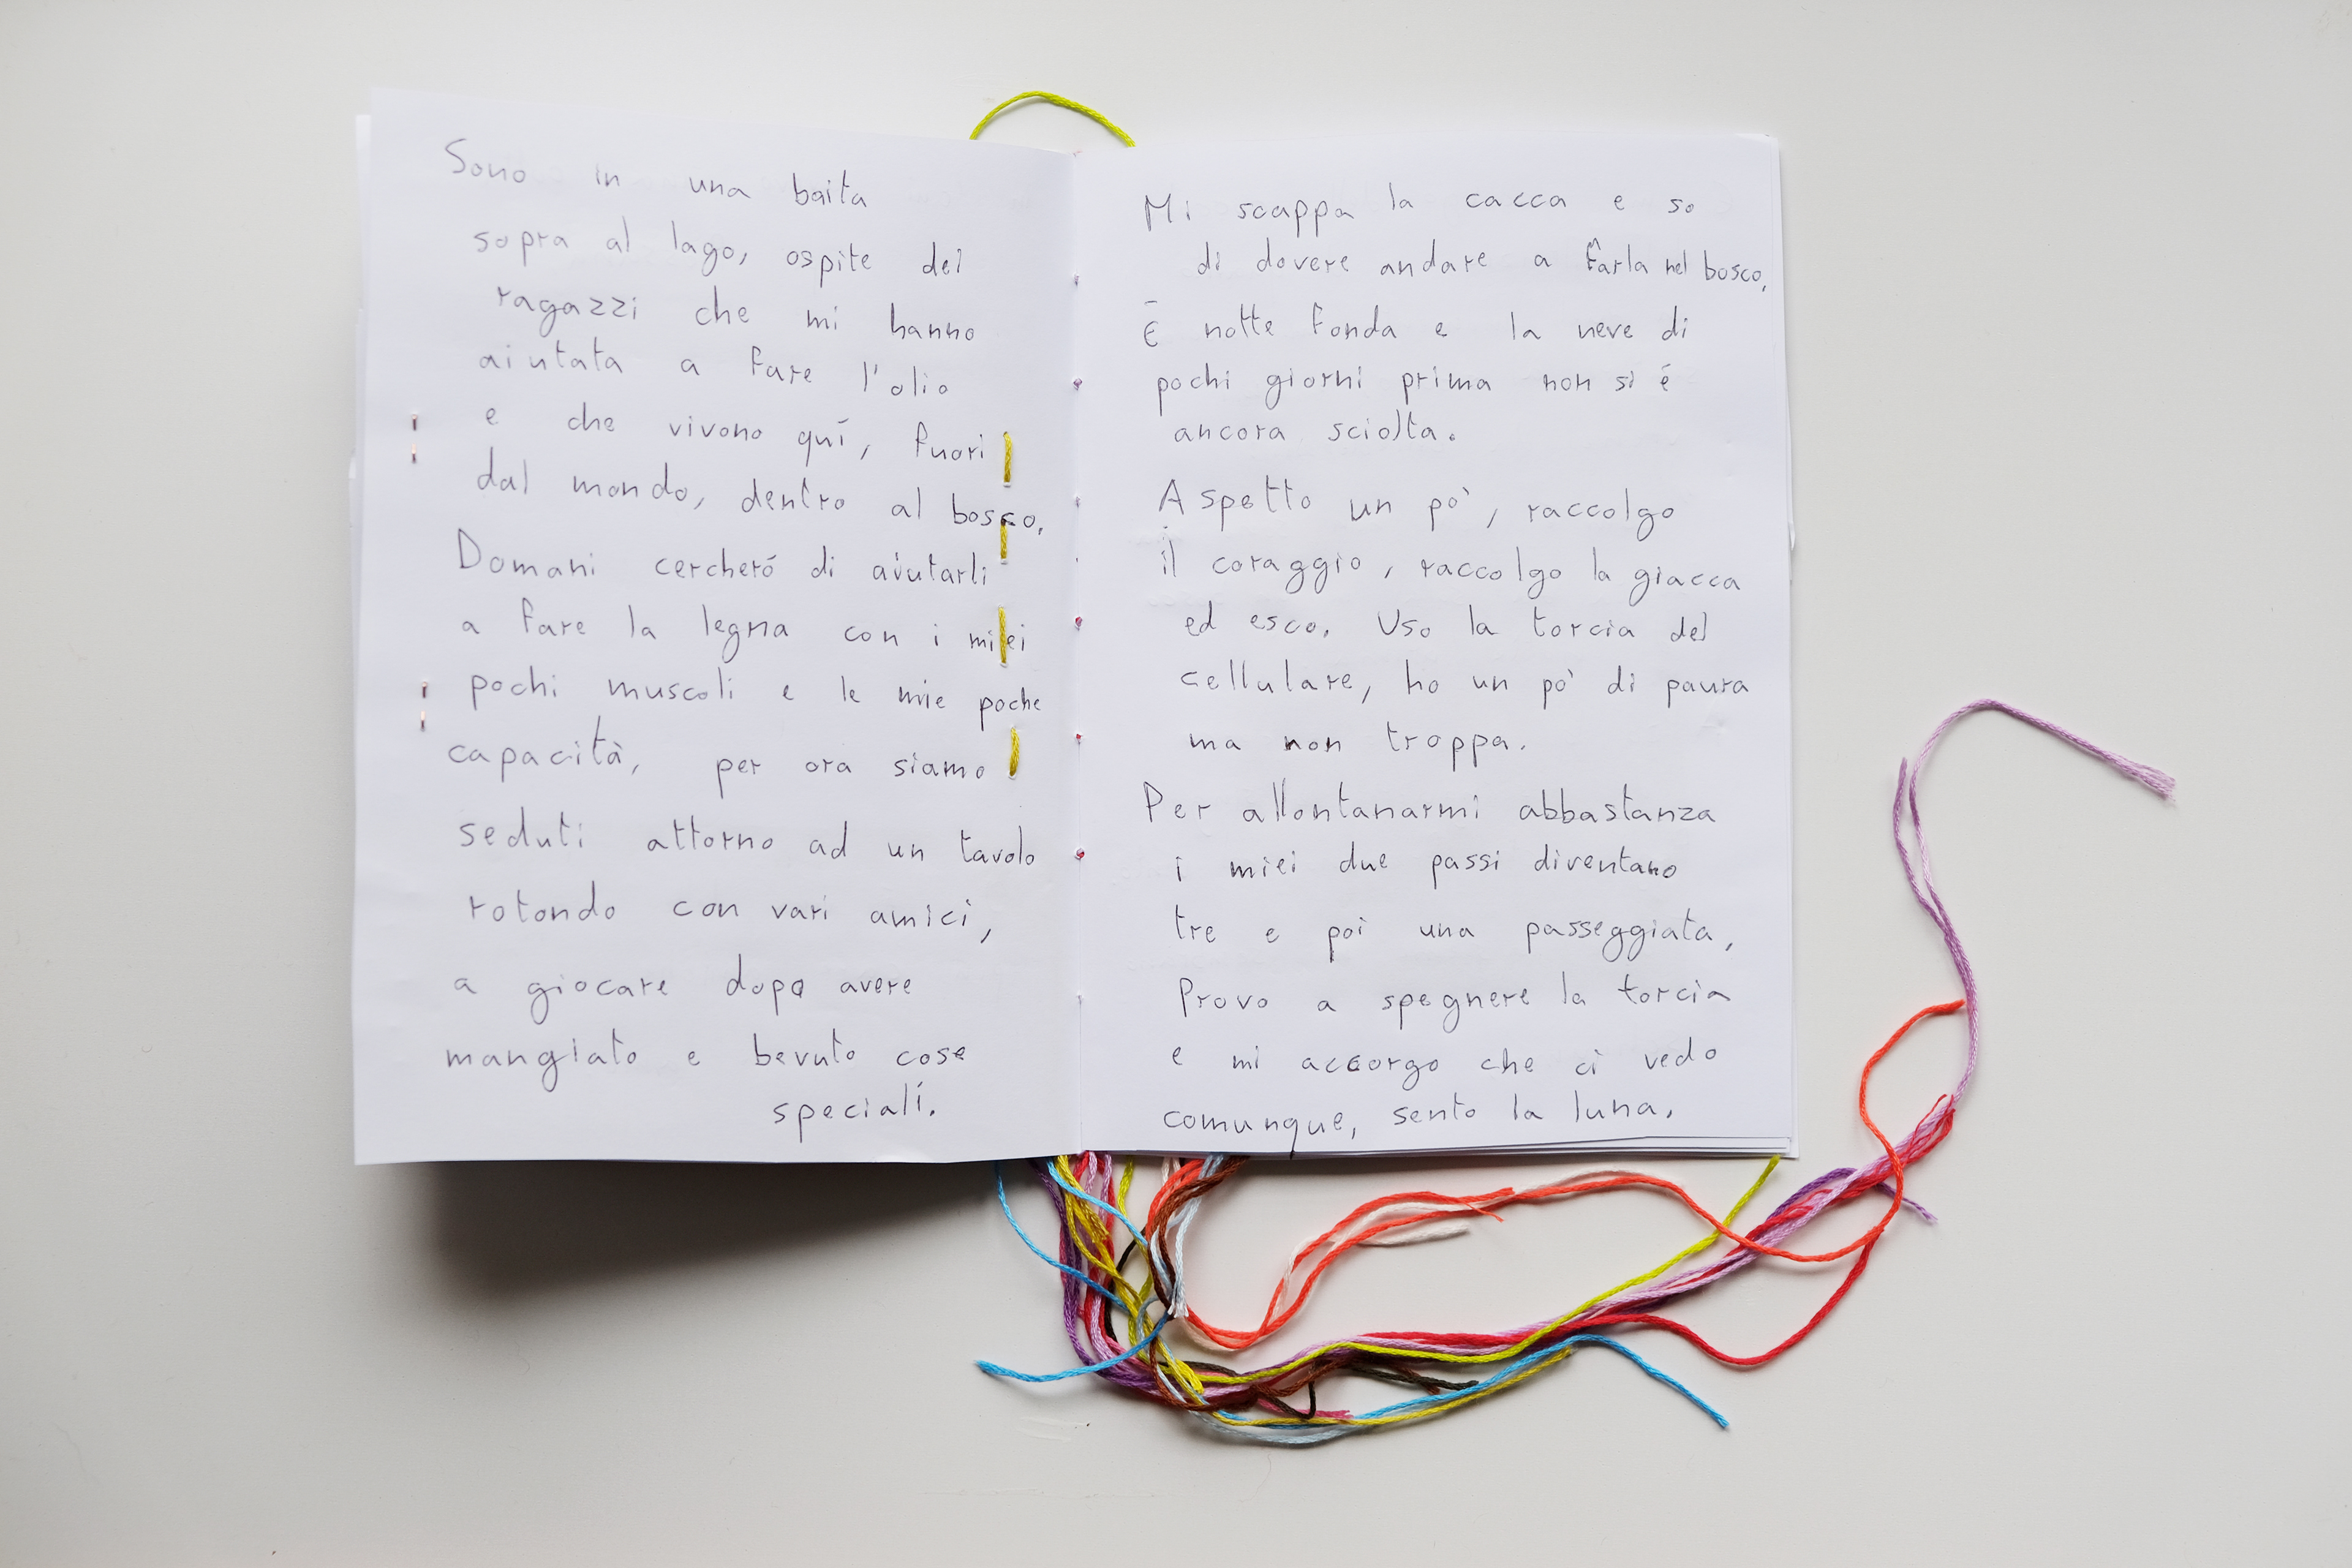 Sono in una baita
sopra al lago, ospite dei
ragazzi che mi hanno
aiutata a fare l'olio
e che vivono quí, fuori
dal mondo, dentro al bosco,
Domani cercheró di aiutarli
a fare la legna con i miei
pochi muscoli e le mie poche
capacità, per ora siamo
seduti attorno ad un tavolo
rotondo con vari amici,
a giocare dopo avere
mangiato e bevuto cose
speciali.
Mi scappa la cacca e so
di dovere andare a farla nel bosco,
É notte fonda e la neve di
pochi giorni prima non si é
ancora sciolta.
Aspetto un po', raccolgo
il coraggio, raccolgo la giacca
ed esco. Uso la torcia del
cellulare, ho un po' di paura
ma non troppa.
Per allontanarmi abbastanza
i miei due passi diventano
tre e poi una passeggiata,
Provo a spegnere la torcia
e mi accorgo che ci vedo
comunque, sento la luna.